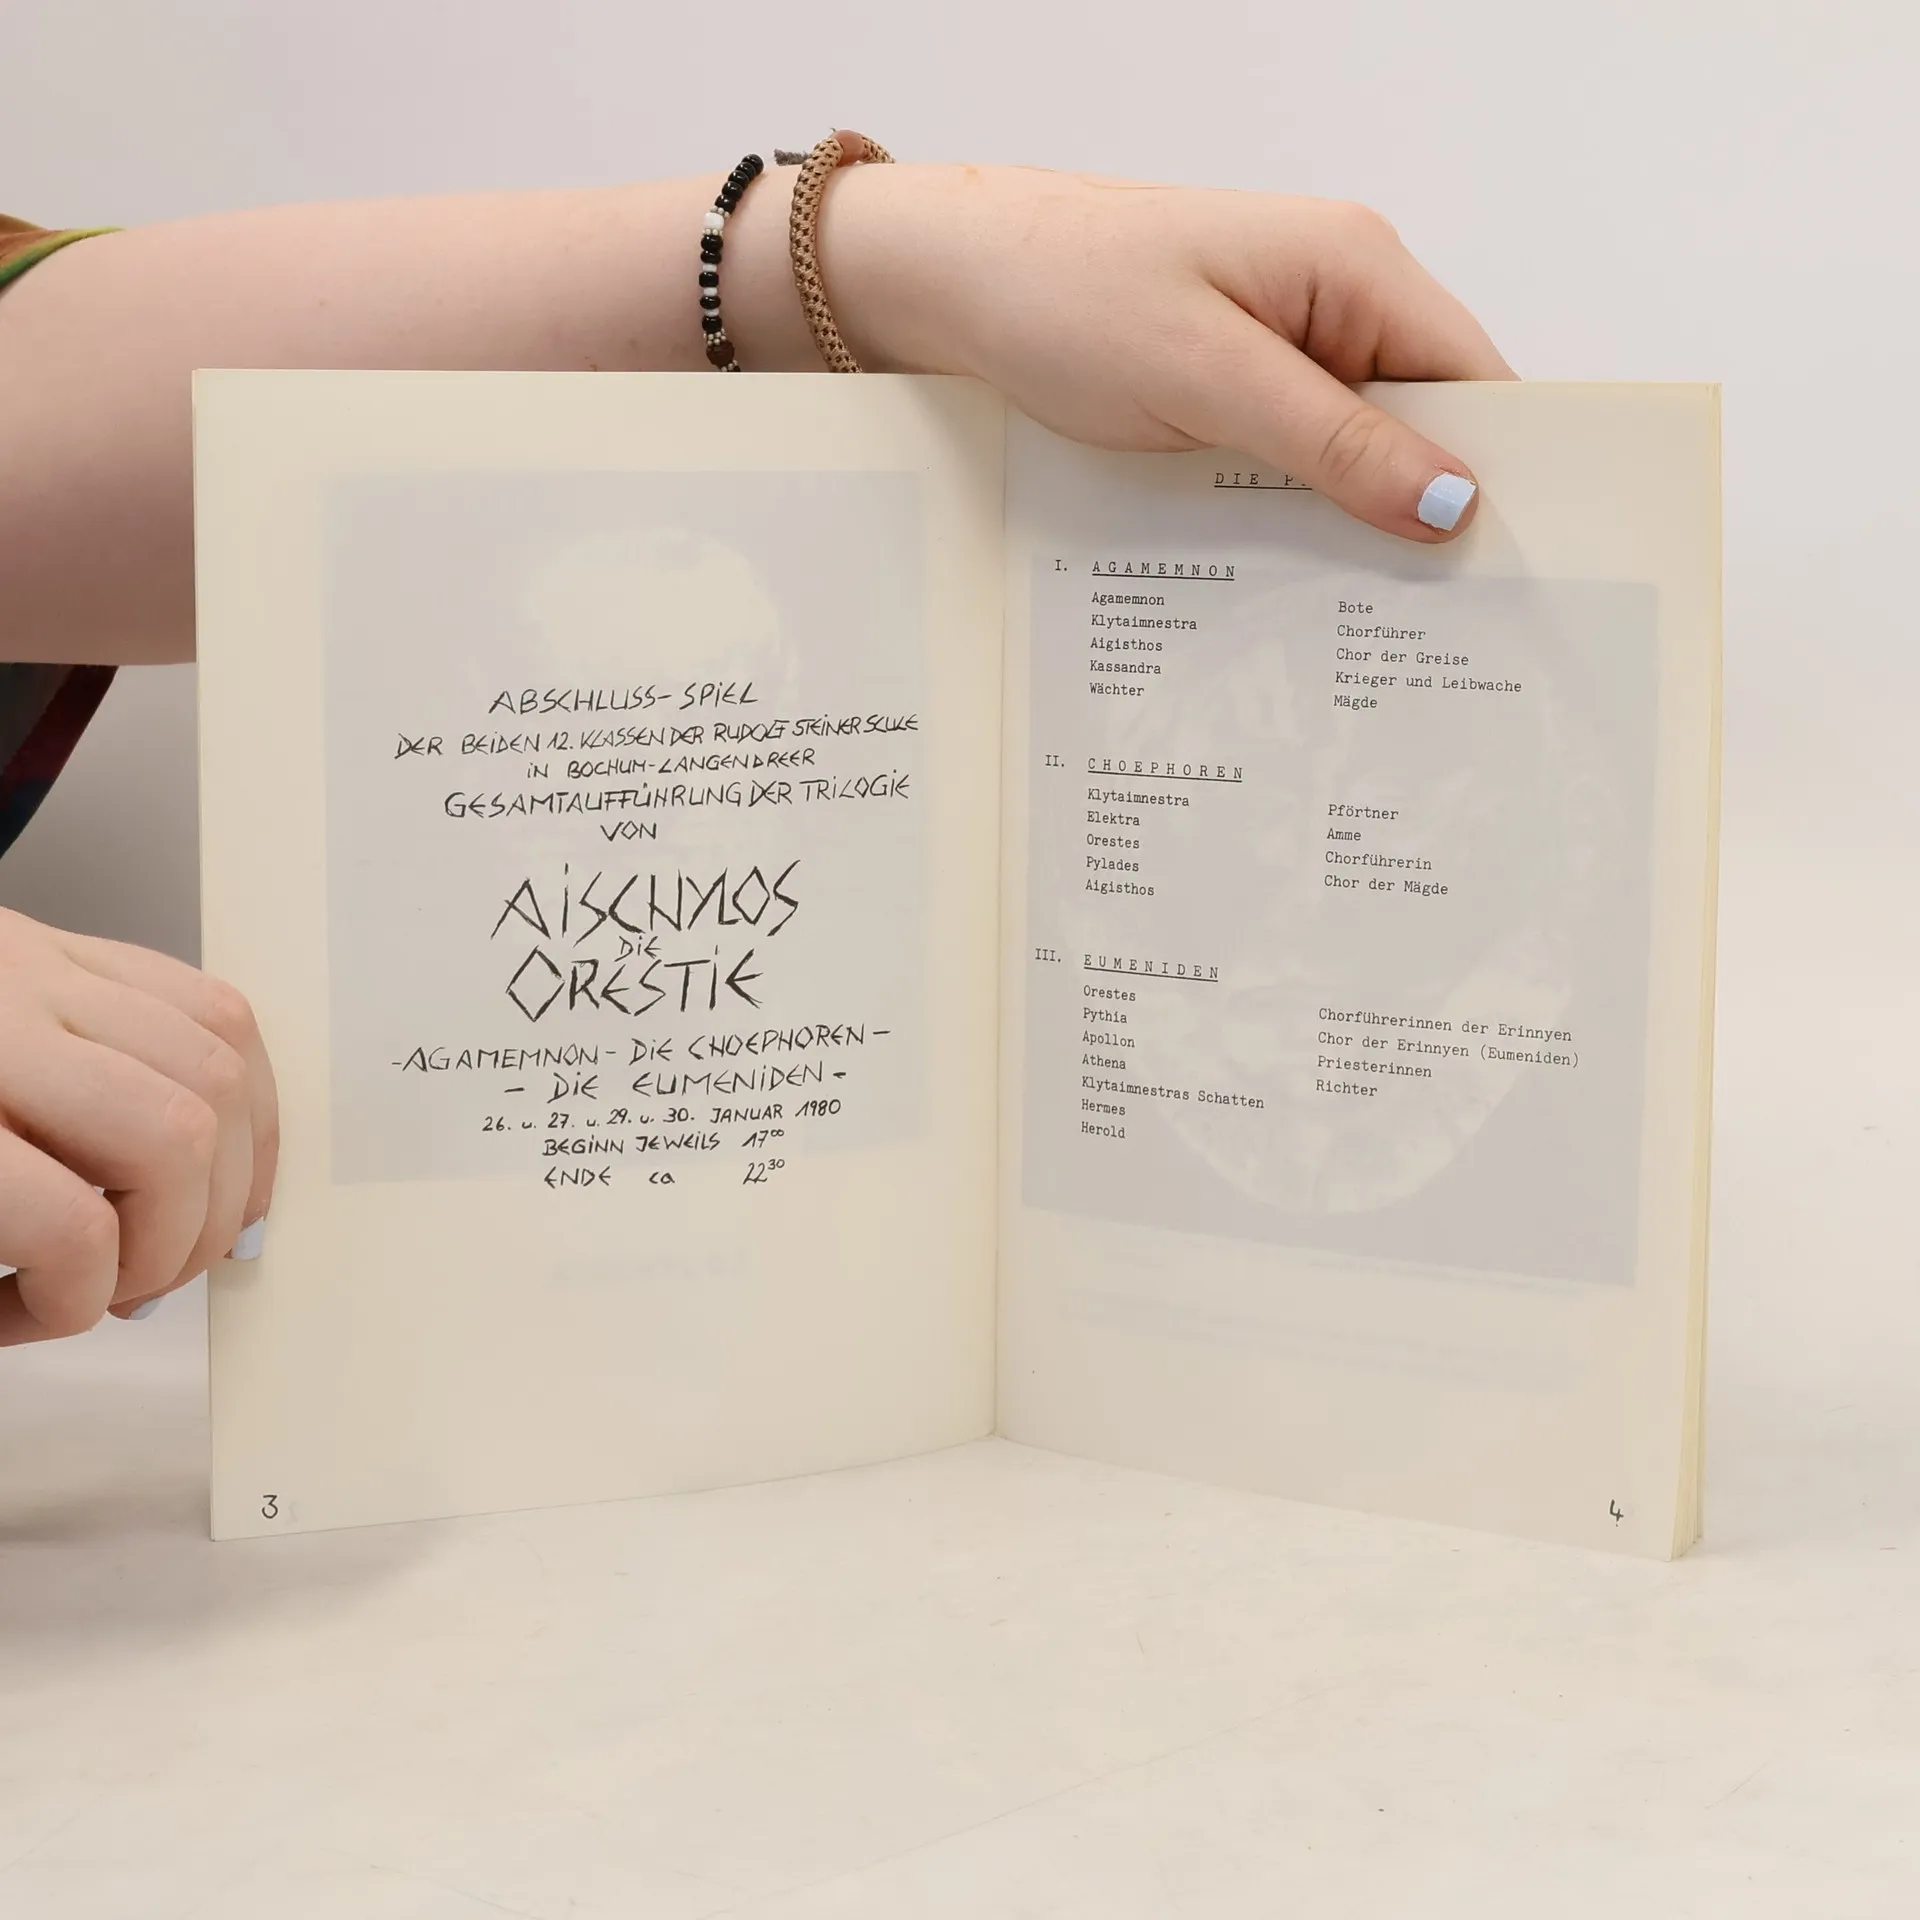 ABSCHLUSS-SPiEL
DER BEiDEN 12. KLASSEN DER RUDOLF STEiNER SCULE
iN BOCHUM-LANGENDREER
GESAMTAUFFÜHRUNG DER TRiLOGiE
VON
AiSCHYLOS
DiE
ORESTiE
-AGAMEMNON- DiE CHOEPHOREN-
- DiE EUMENiDEN-
26. u. 27. u. 29. u. 30. JANUAR 1980
BEGiNN JEWEiLS 17⁰⁰
ENDE ca 22³⁰
3
DIE
I. AGAMEMNON
Agamemnon
Klytaimnestra
Aigisthos
Kassandra
Wächter
Bote
Chorführer
Chor der Greise
Krieger und Leibwache
Mägde
II. CHOEPHOREN
Klytaimnestra
Elektra
Orestes
Pylades
Aigisthos
Pförtner
Amme
Chorführerin
Chor der Mägde
III. EUMENIDEN
Orestes
Pythia
Apollon
Athena
Klytaimnestras Schatten
Hermes
Herold
Chorführerinnen der Erinnyen
Chor der Erinnyen (Eumeniden)
Priesterinnen
Richter
4